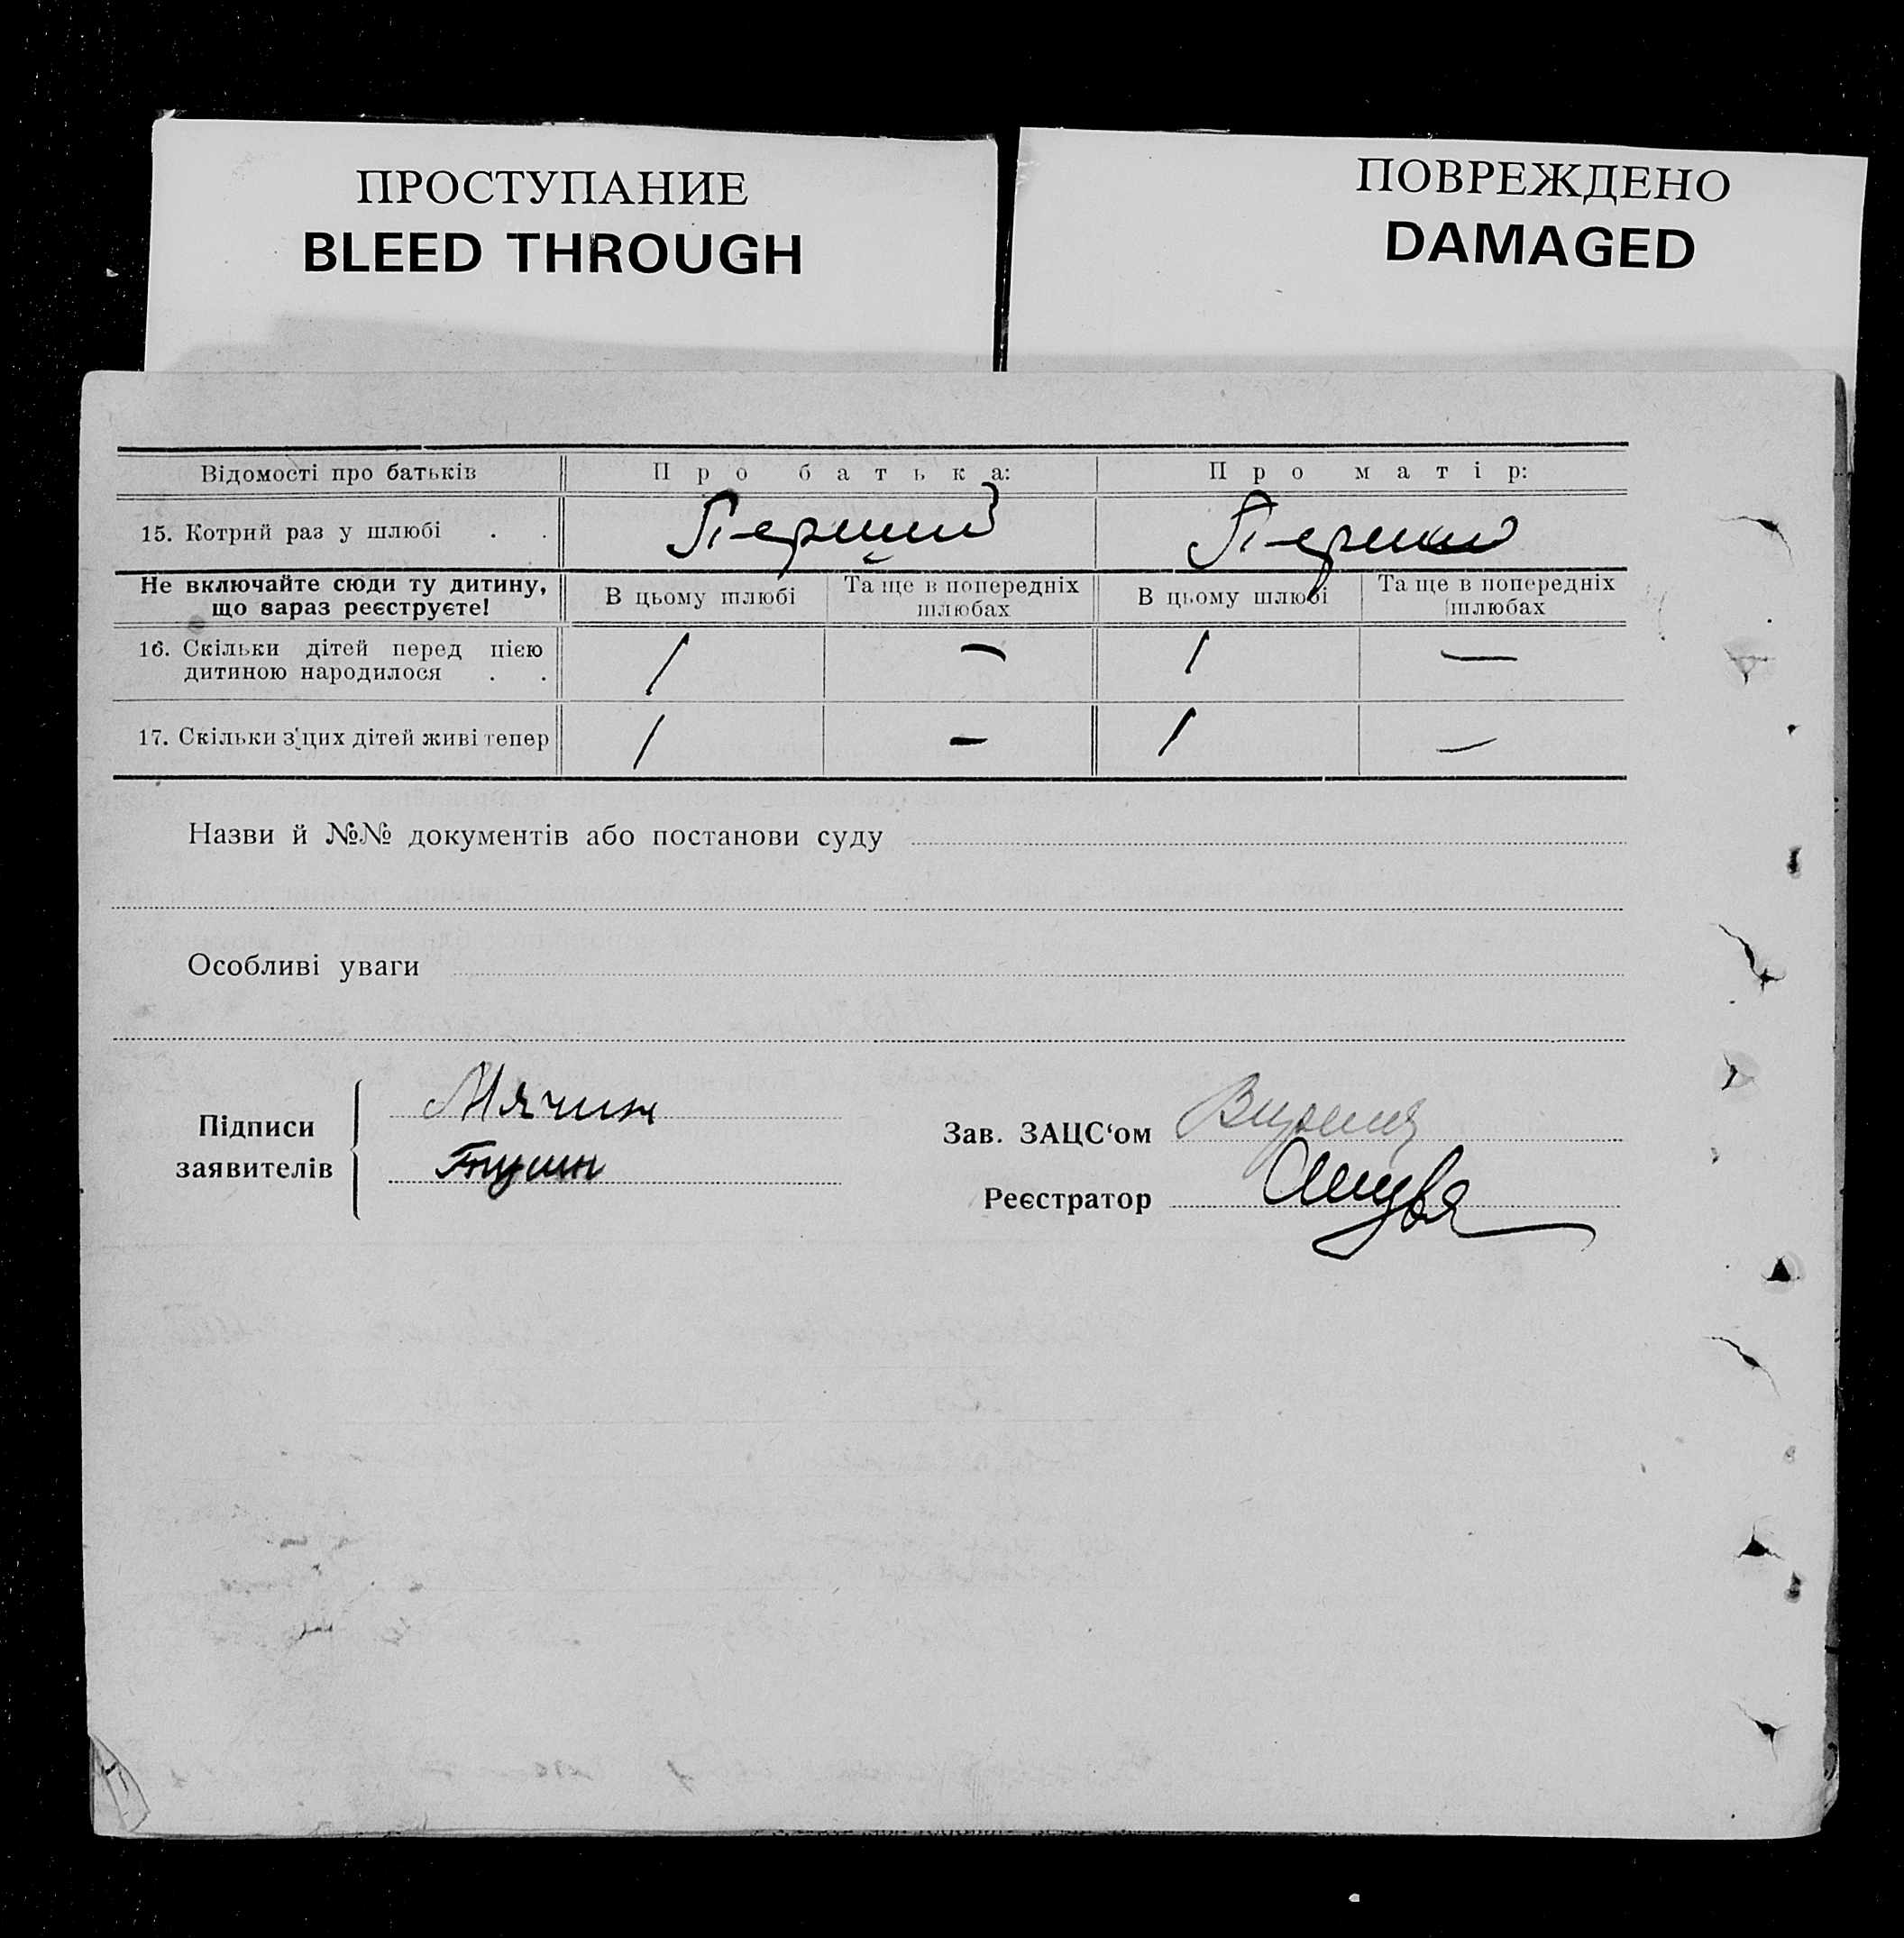 ПРОСТУПАНИЕ
BLEED THROUGH
ПОВРЕЖДЕНО
DAMAGED
Відомості про батьків Про батька: Про матір:
15. Котрий раз у шлюбі . . Перший Перший
Не включайте сюди ту дитину, що зараз реєструєте! В цьому шлюбі Та ще в попередніх шлюбах В цьому шлюбі Та ще в попередніх шлюбах
16. Скільки дітей перед цією
дитиною народилося . . 1 — 1 —
17. Скільки з цих дітей живі тепер 1 — 1 —
Назви й №№ документів або постанови суду
Особливі уваги
Підписи
заявителів
Мячин
Зав. ЗАЦС‘ом
Реєстратор